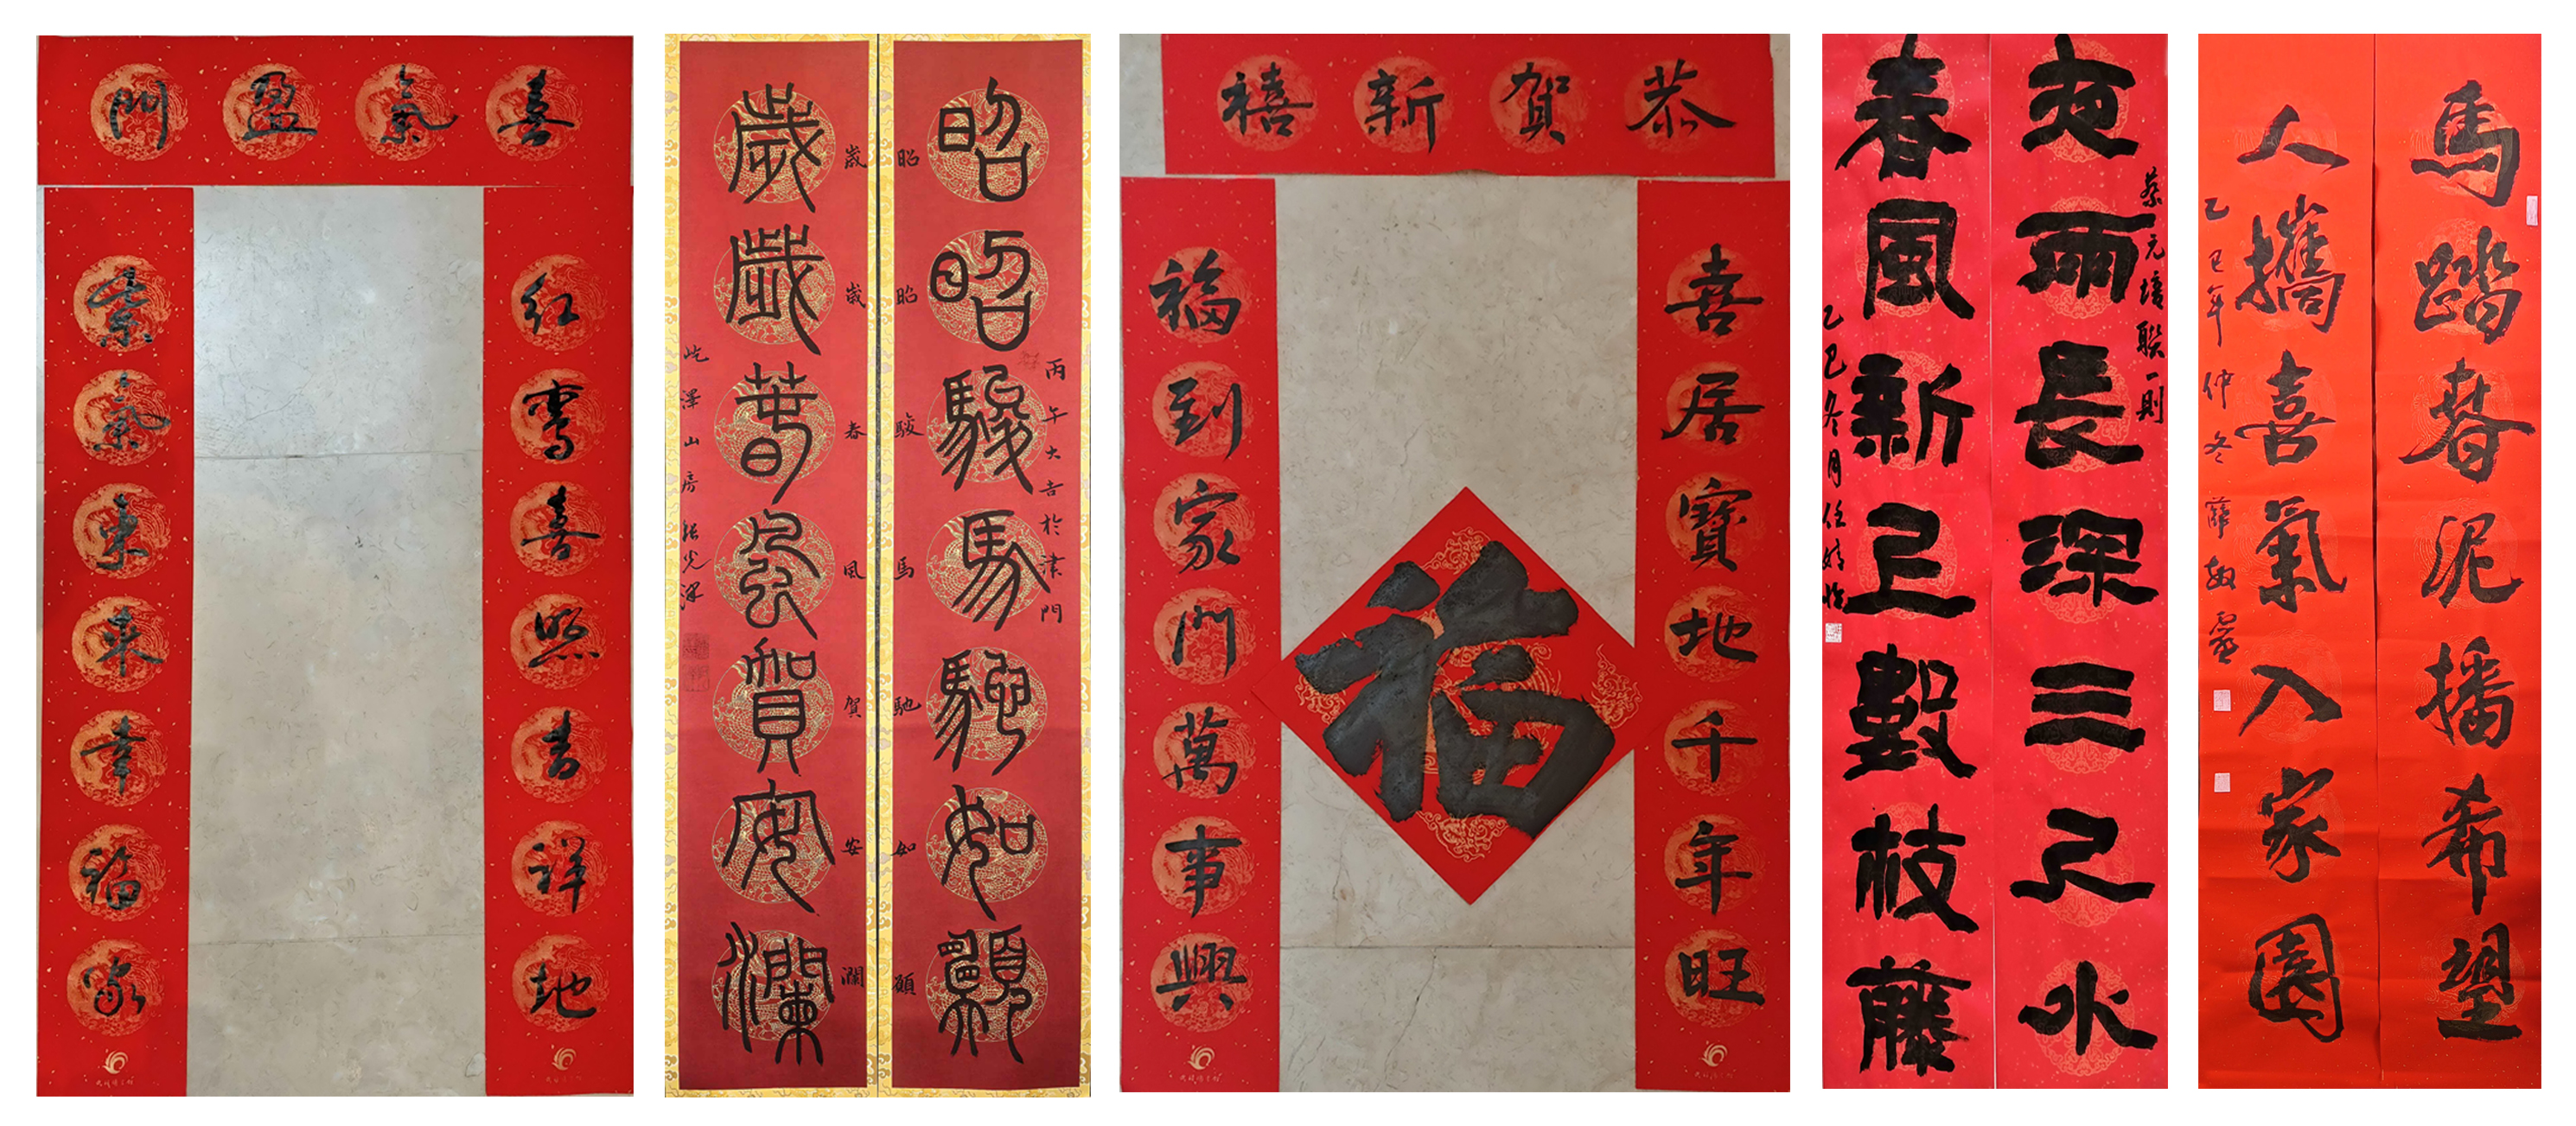 喜氣盈門
红鸾喜照吉祥地
紫氣東來幸福家
昭昭駿馬馳如願
丙午大吉於津門
昭昭駿馬馳如願
歲歲春風賀安瀾
歲歲春風賀安瀾
屹澤山房 張光
恭賀新禧
喜居寶地千年旺
福到家門萬事興
福
夜雨長深三尺水
蔡元培聯一則
春風新上數枝藤
乙巳冬月任婧
馬踏春泥播希望
人攜喜氣入家園
乙巳年仲冬 薛敏